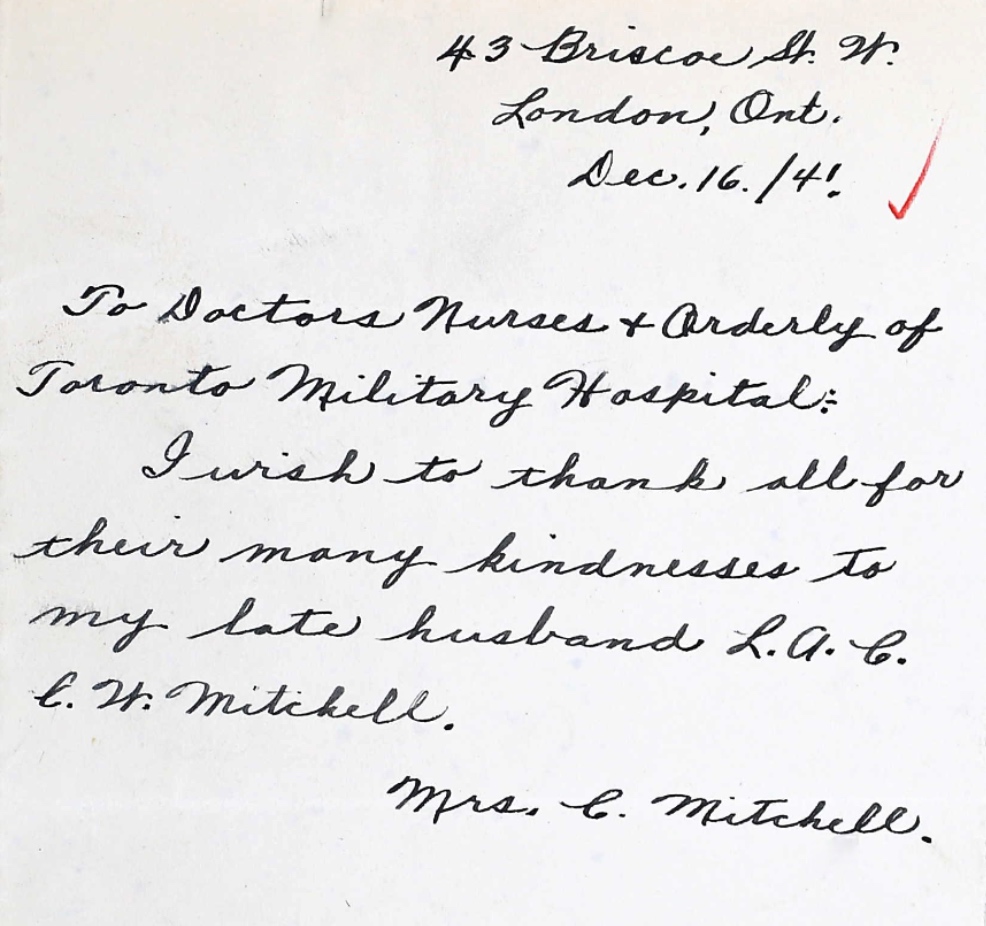 43 Briscoe St. W.
London, Ont.
Dec. 16. /41.
To Doctors Nurses + Orderly of
Toronto Military Hospital:-
I wish to thank all for
their many kindnesses to
my late husband L.A.C.
C. W. Mitchell.
Mrs. C. Mitchell.